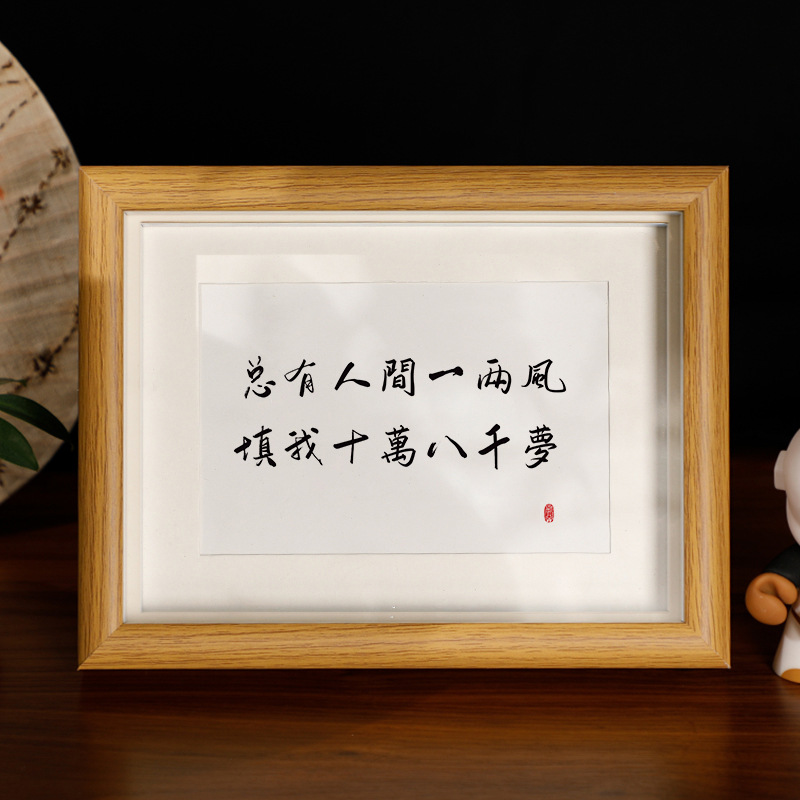 总有人間一兩風
填我十萬八千夢